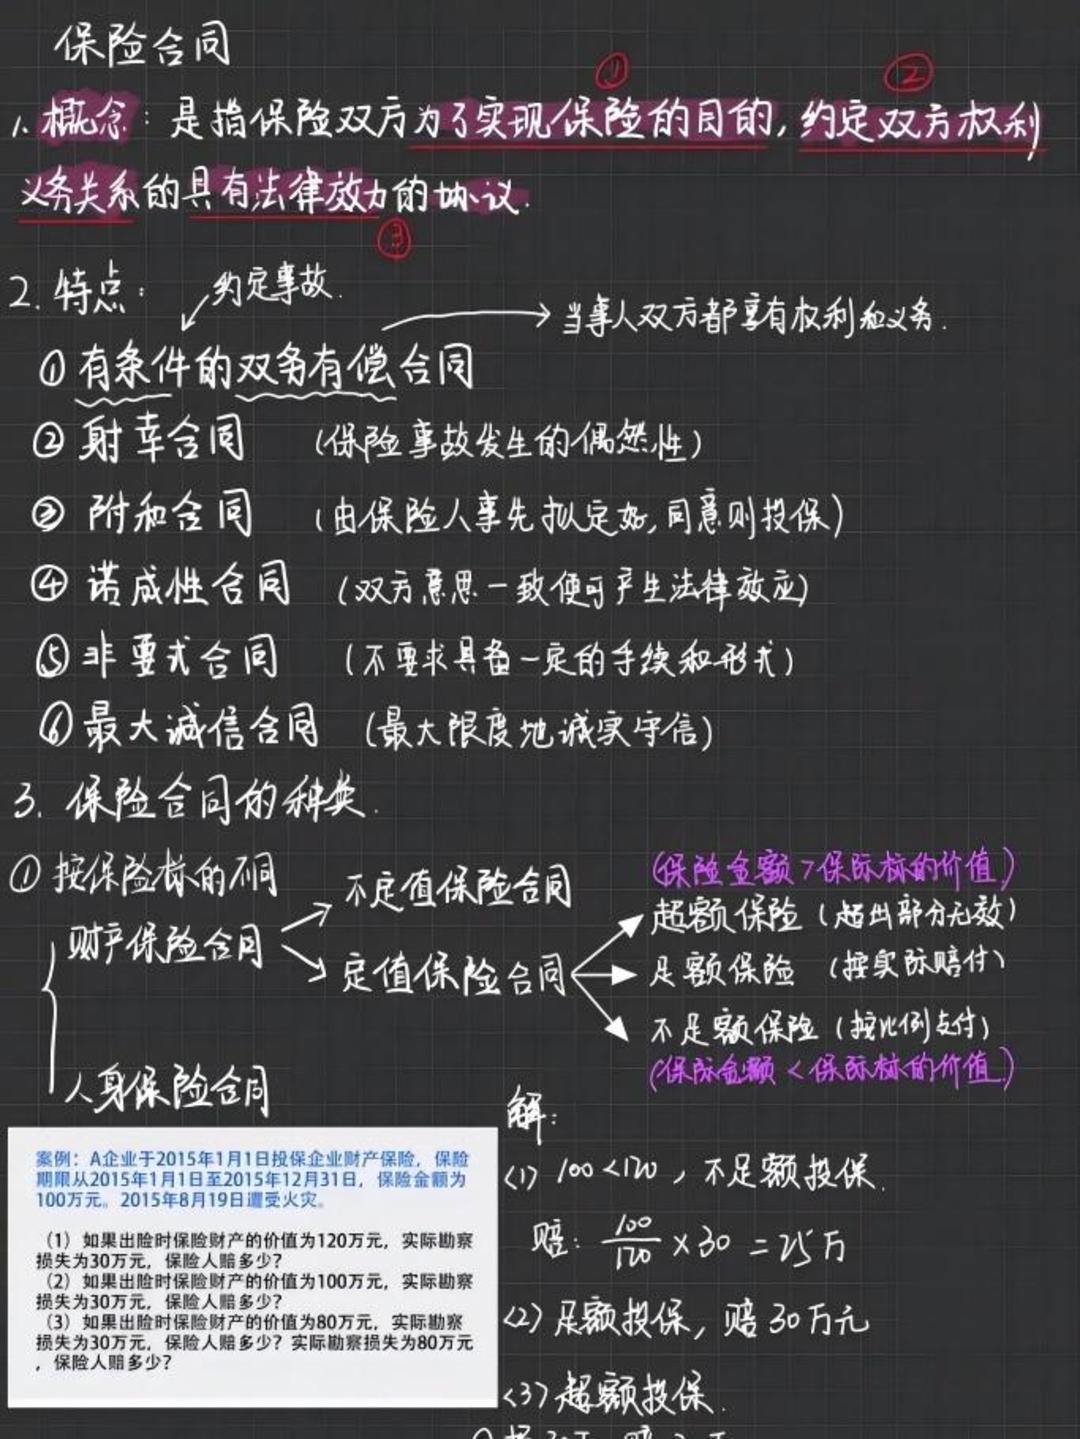 保险合同
①
②
1. 概念：是指保险双方为了实现保险的目的，约定双方权利
义务关系的具有法律效力的协议.
③
2. 特点：
约定事故.
当事人双方都享有权利和义务.
① 有条件的双务有偿合同
② 射幸合同 (保险事故发生的偶然性)
③ 附和合同 (由保险人事先拟定好,同意则投保)
④ 诺成性合同 (双方意思一致便可产生法律效应)
⑤ 非要式合同 (不要求具备一定的手续和形式)
⑥ 最大诚信合同 (最大限度地诚实守信)
3. 保险合同的种类.
① 按保险标的不同
财产保险合同
不定值保险合同
定值保险合同
(保险金额>保际标的价值)
超额保险 (超出部分无效)
足额保险 (按实际赔付)
不足额保险 (按比例支付)
(保际金额<保际标的价值)
人身保险合同
案例：A企业于2015年1月1日投保企业财产保险，保险
期限从2015年1月1日至2015年12月31日，保险金额为
100万元。2015年8月19日遭受火灾。
（1）如果出险时保险财产的价值为120万元，实际勘察
损失为30万元，保险人赔多少？
（2）如果出险时保险财产的价值为100万元，实际勘察
损失为30万元，保险人赔多少？
（3）如果出险时保险财产的价值为80万元，实际勘察
损失为30万元，保险人赔多少？实际勘察损失为80万元
，保险人赔多少？
解：
<1> 100<120，不足额投保.
赔：100/120 ×30 = 25万
<2> 足额投保，赔30万元
<3> 超额投保.